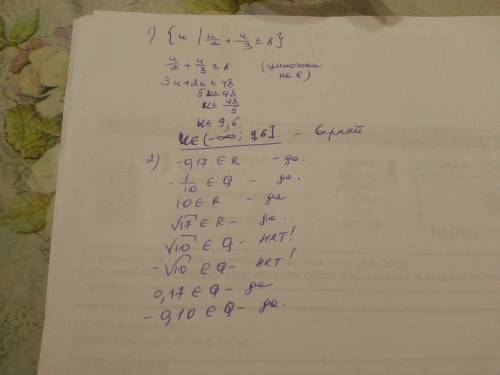 1) {x | x/2 + x/3 ≤ 8}
x/2 + x/3 ≤ 8 (умножим на 6)
3x+2x ≤ 48
5x ≤ 48
x ≤ 48/5
x ≤ 9,6;
x ∈ (-∞; 9,6]. –
2) -0,17 ∈ R – да.
-1/10 ∈ Q – да.
10 ∈ R – да
√17 ∈ R – да.
√10 ∈ Q – нет!
-√10 ∈ Q – нет!
0,17 ∈ Q – да
-0,10 ∈ Q – да.